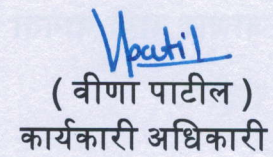 Vpatil
( वीणा पाटील )
कार्यकारी अधिकारी